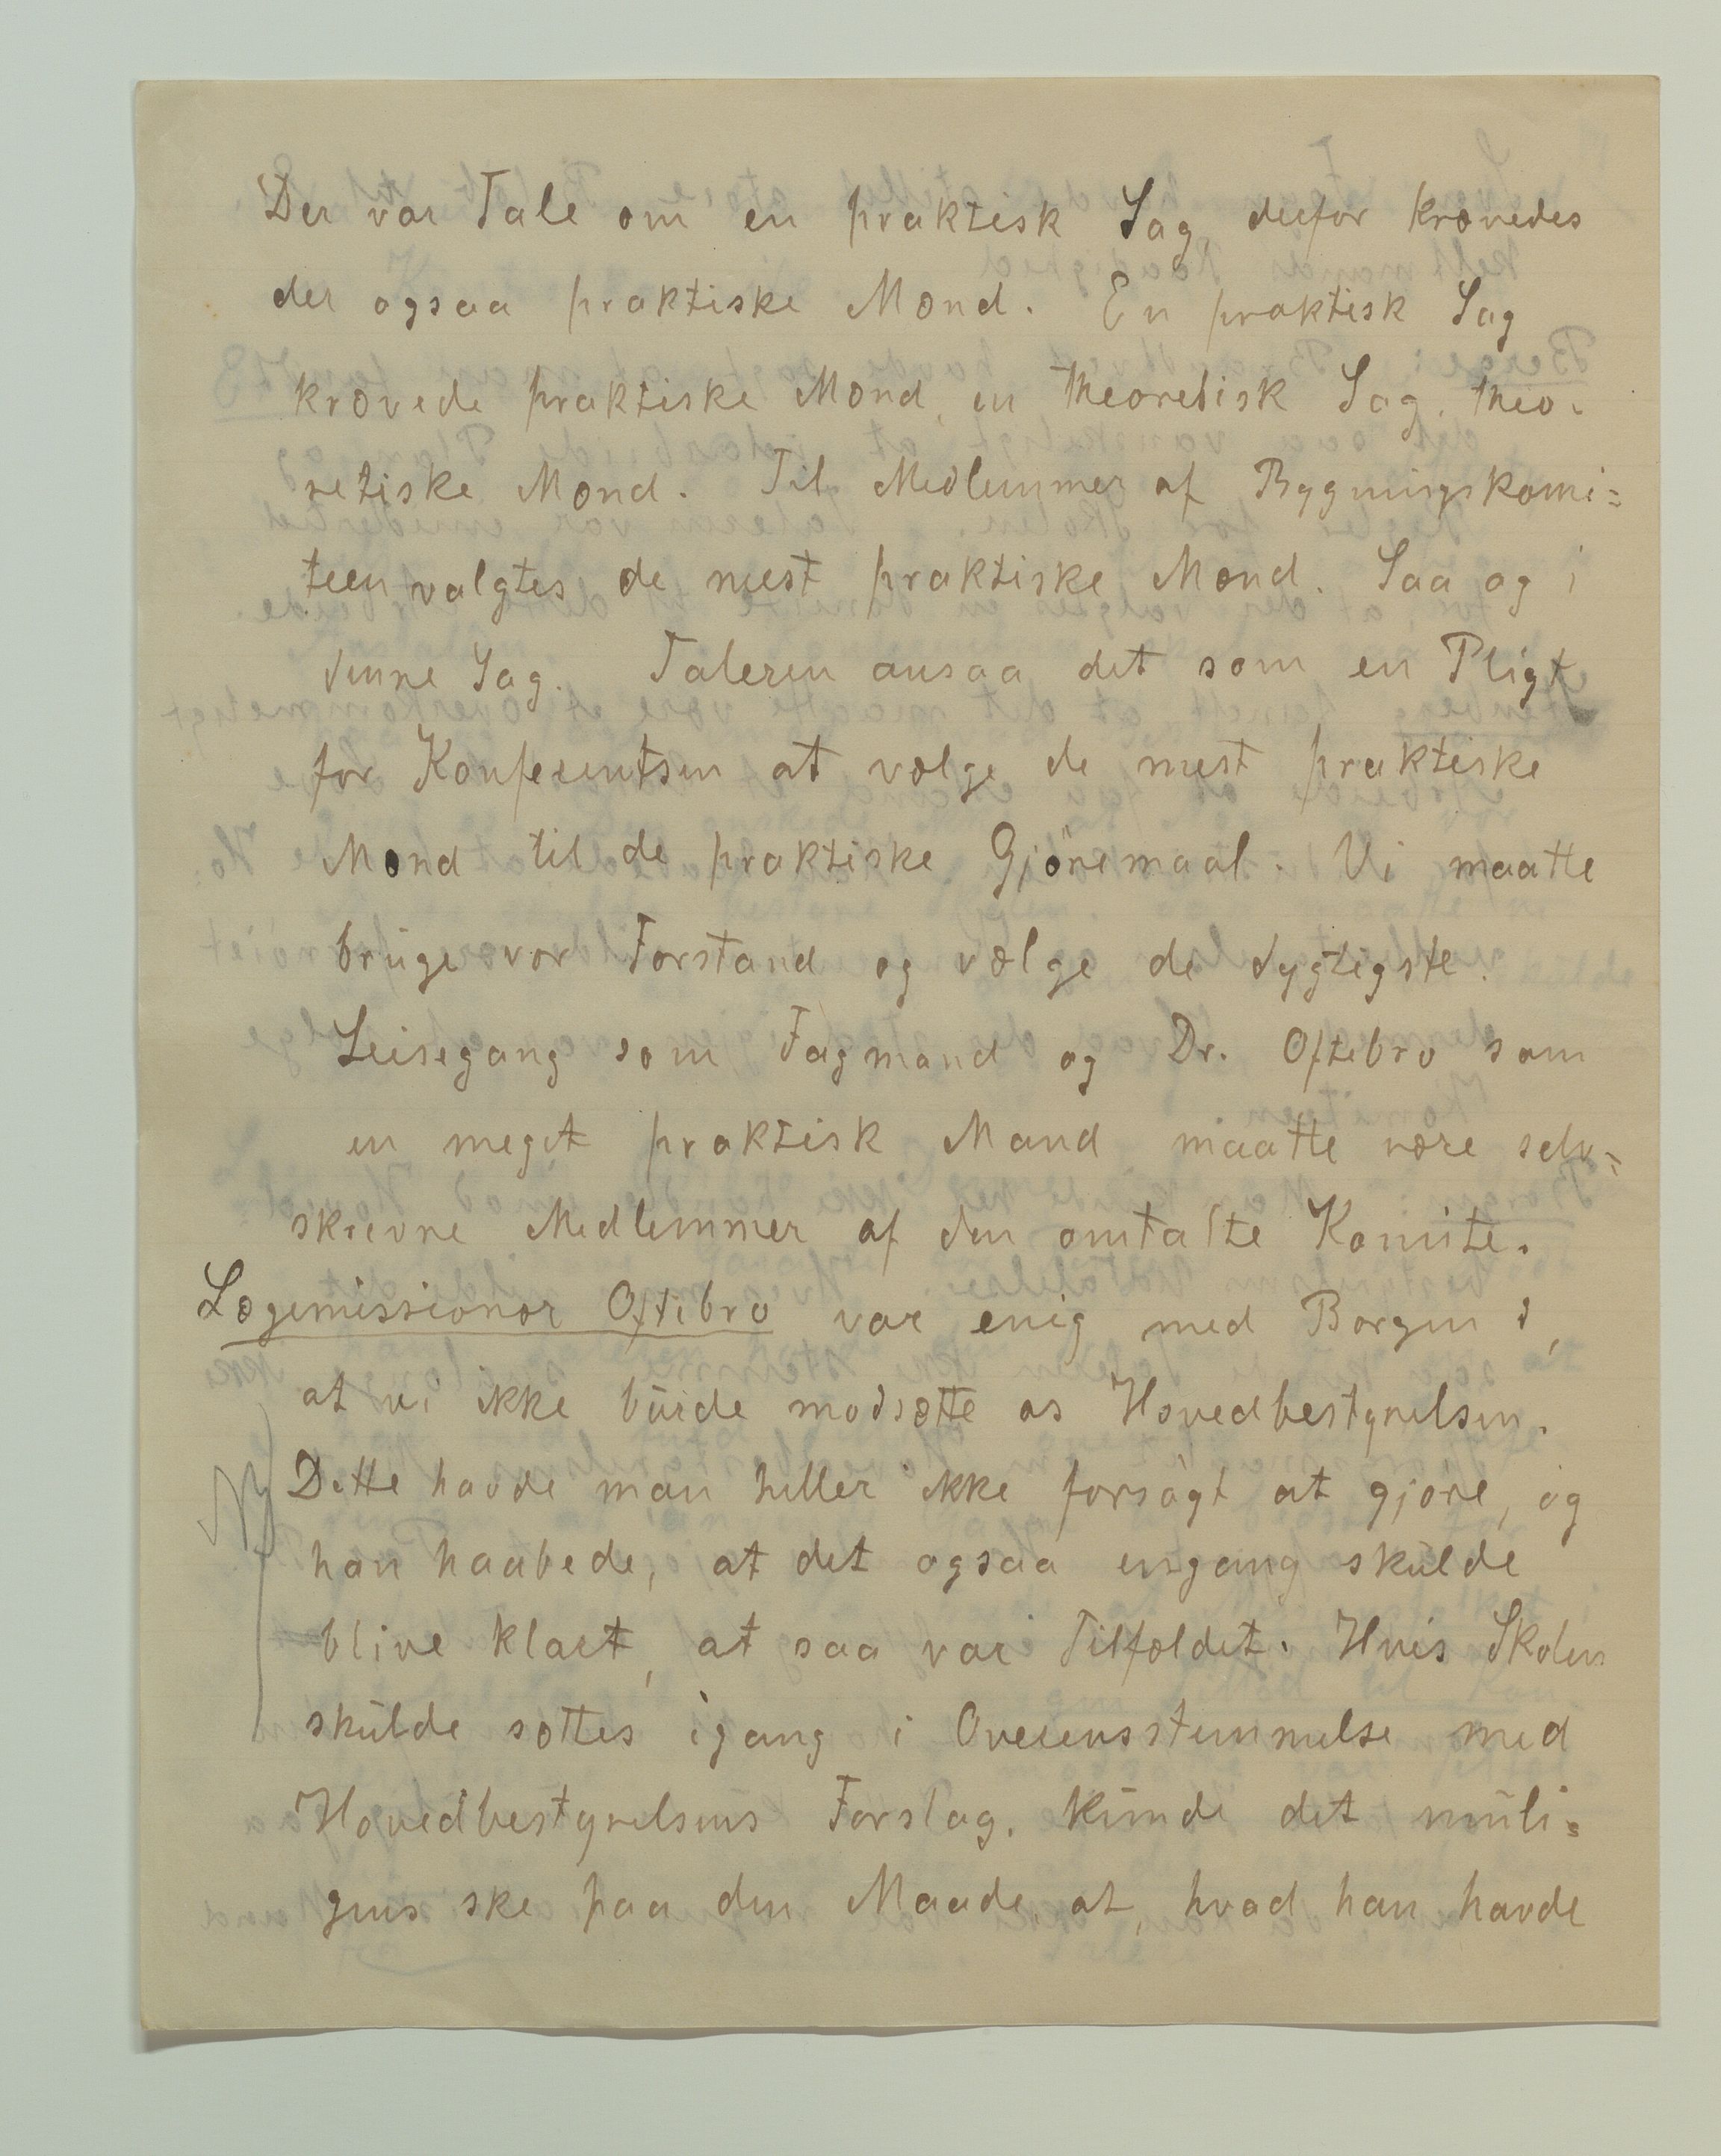 Der var Tale om en praktisk Sag, derfor krævedes
der ogsaa praktiske Mænd. En praktisk Sag
krævede praktiske Mænd, en theoretisk Sag, theo-
retiske Mænd. Til Medlemmer af Bygningskomi=
teen valgtes de mest praktiske Mænd. Saa og i
denne Sag. Taleren ansaa det som en Pligt
for Konferentsen at vælge de mest praktiske
Mænd til de praktiske Gjöremaal. Vi maatte
bruge vor Forstand og vælge de dygtigste.
Leisegang som Fagmand og Dr. Oftebro som
en meget praktisk Mand maatte være selv=
skrevne Medlemmer af den omtalte Komite.
Lægemissionær Oftebro var enig med Borgen i,
at vi ikke burde modsætte os Hovedbestyrelsen.
Dette havde man heller ikke forsøgt at gjøre, og
han haabede, at det ogsaa engang skulde
blive klart, at saa var Tilfældet. Hvis Skolen
skulde sættes igang i Overensstemmelse med
Hovedbestyrelsens Forslag, kunde det muli=
gens ske paa den Maade, at, hvad han havde